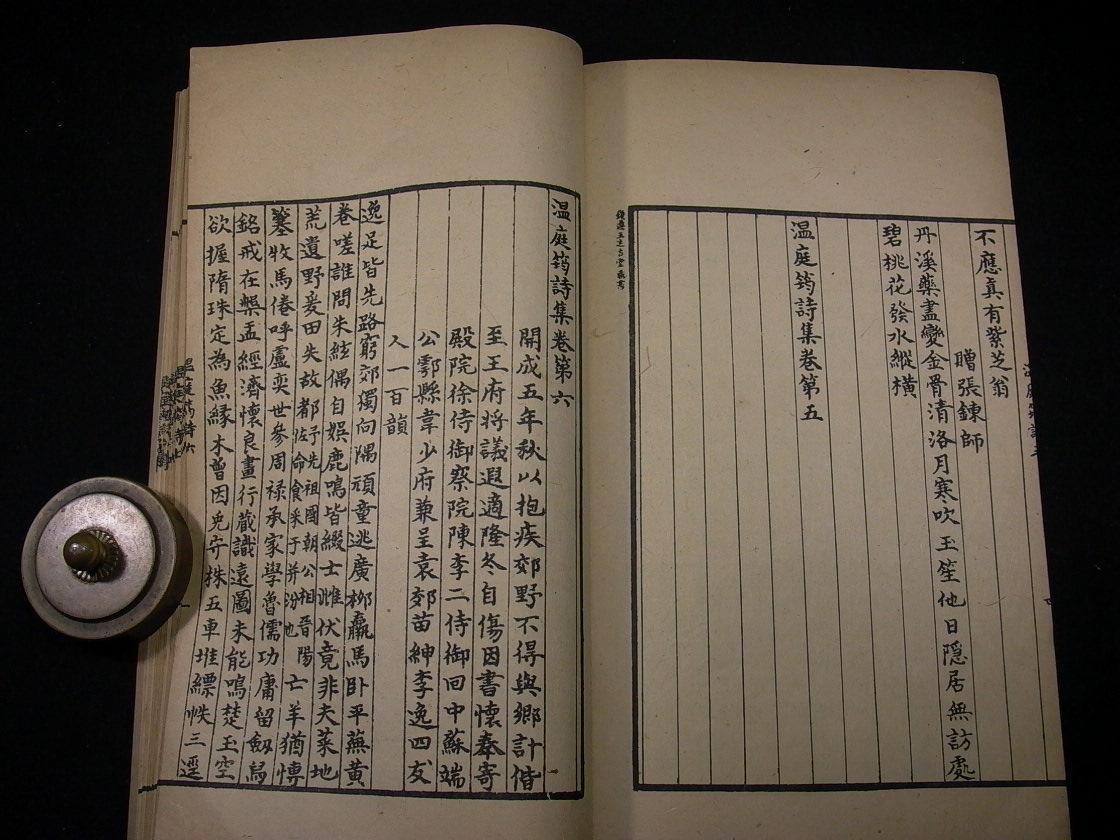 不應真有紫芝翁
贈張鍊師
丹溪藥盡變金骨清洛月寒吹玉笙他日隱居無訪處
碧桃花發水縱橫
温庭筠詩集卷第五
温庭筠詩集卷第六
開成五年秋以抱疾郊野不得與鄉計偕
至王府将議遐適隆冬自傷因書懷奉寄
殿院徐侍御察院陳李二侍御回中蘇端
公鄠縣韋少府兼呈袁郊苗紳李逸四友
人一百韻
逸足皆先路窮郊獨向隅頑童逃廣柳羸馬卧平蕪黄
卷嗟誰問朱絃偶自娛鹿鳴皆綴士雌伏竟非夫菜地
荒遺野爰田失故都予先祖國朝公相晋陽
佐命食采于并汾也亡羊猶博
簺牧馬倦呼盧奕世參周禄承家學魯儒功庸留劔舄
銘戒在槃盂經濟懷良畫行藏識遠圖未能鳴楚玉空
欲握隋珠定為魚緣木曾因兎守株五車堆縹帙三逕